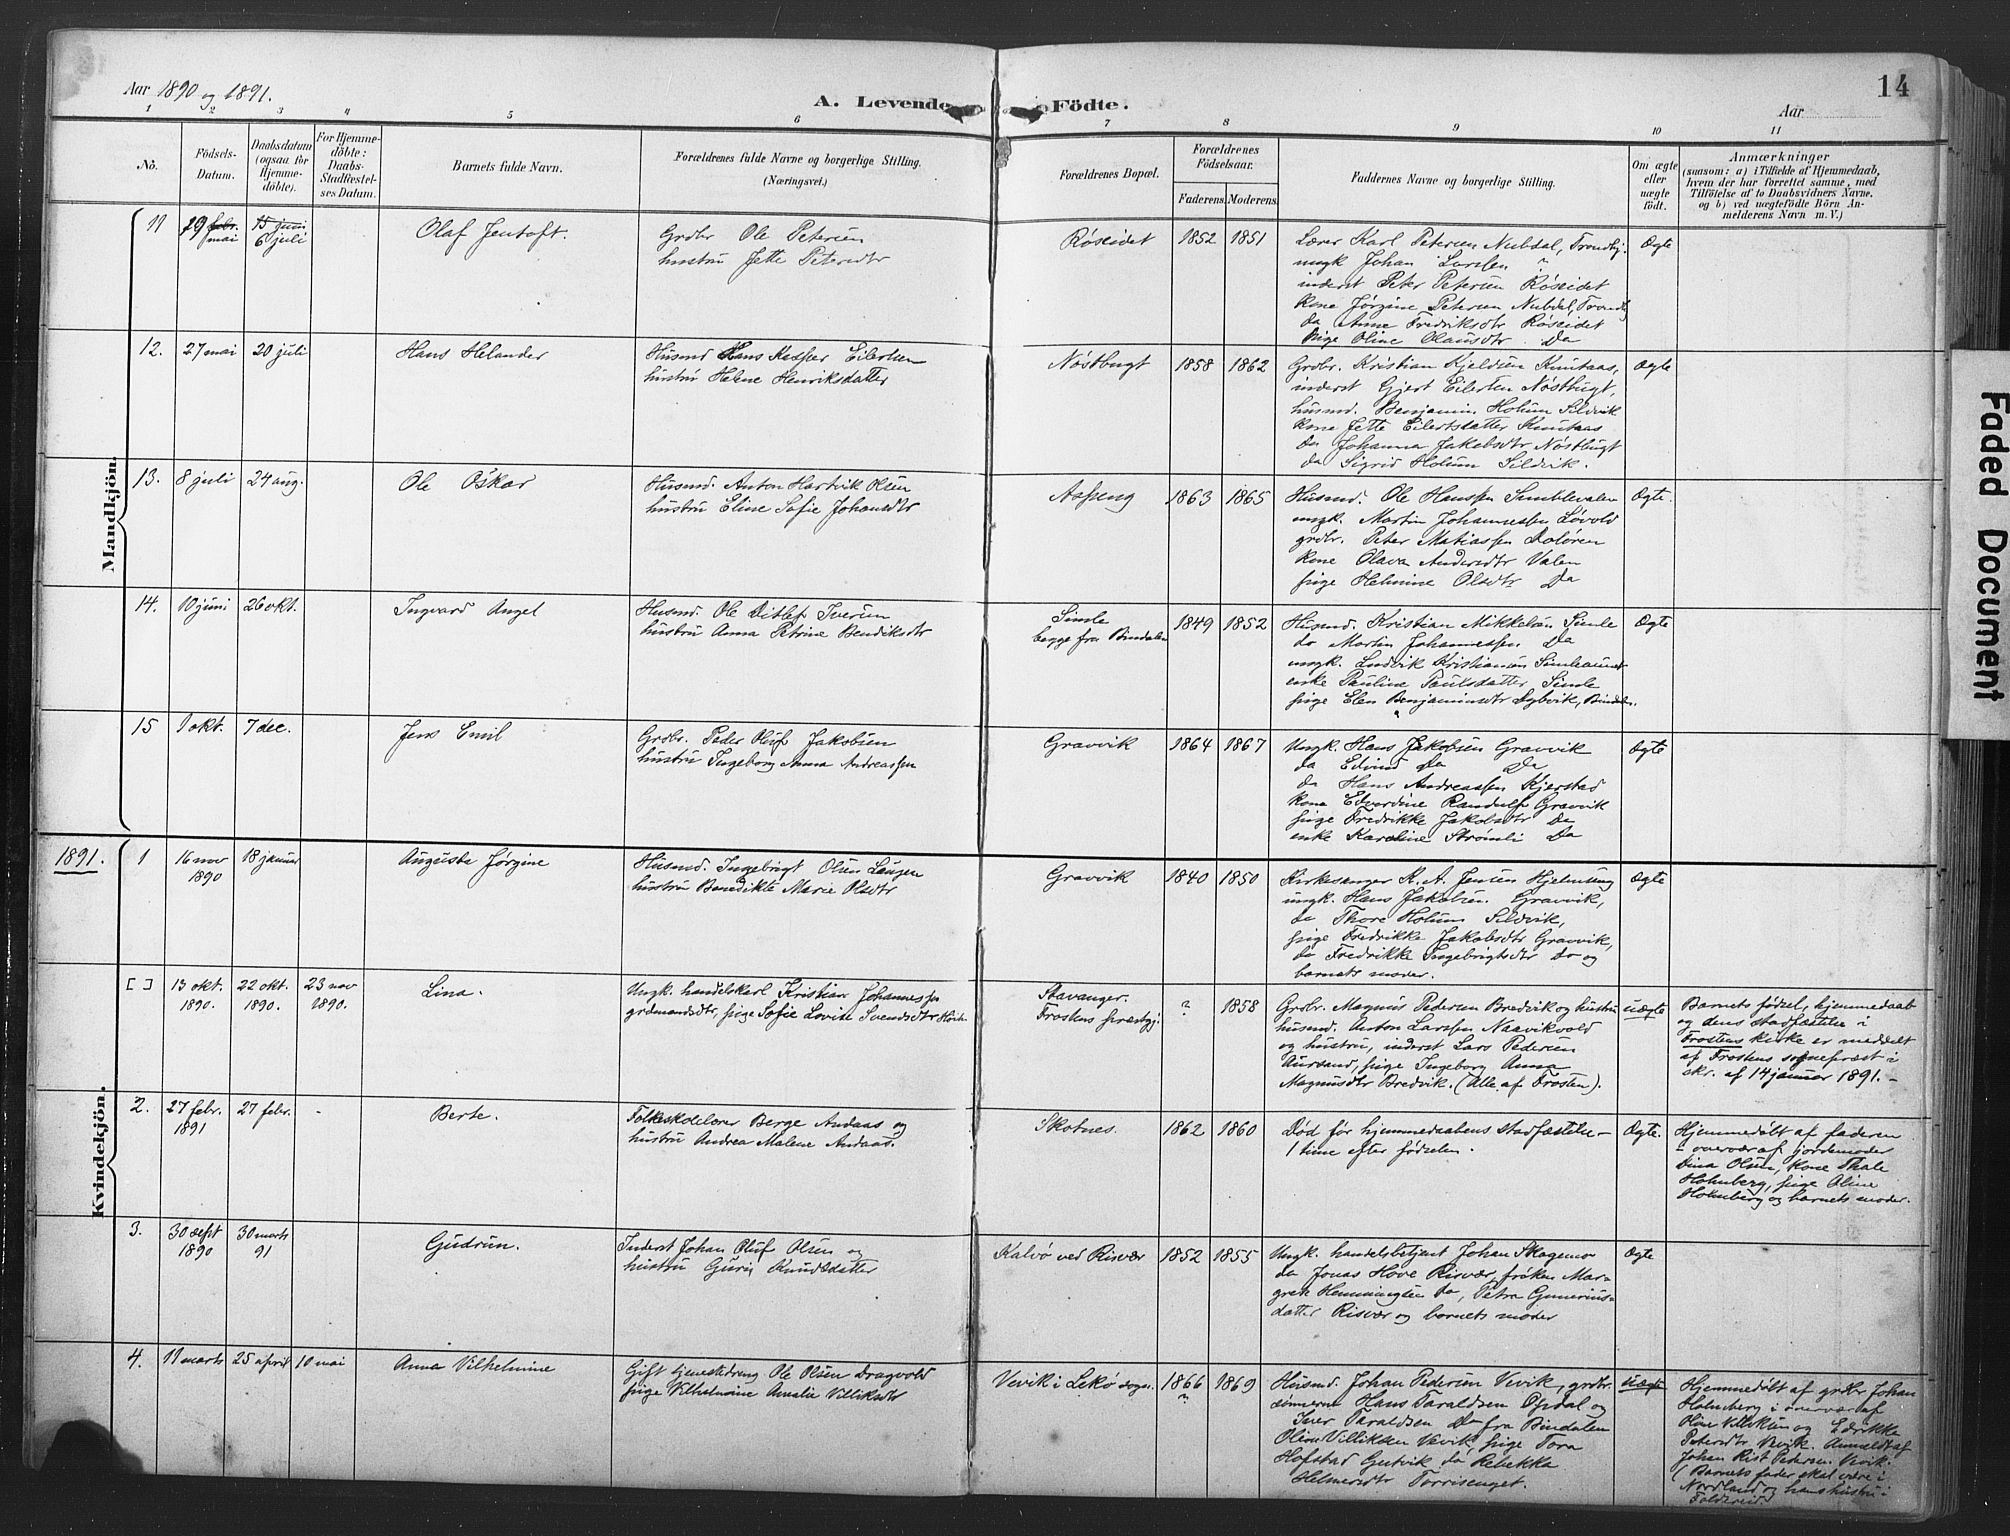 Aar 1890 og 1891.
A. Levende Födte.
Aar
14
1 2 3 4 5 6 7 8 9 10 11
No.
Födsels-Datum.
Daabsdatum (ogsaa for Hjemme-döbte).
For Hjemme-döbte: Daabs-Stadfæstel-ses Datum.
Barnets fulde Navn.
Forældrenes fulde Navne og borgerlige Stilling.
(Næringsvei.)
Forældrenes Bopæl.
Forældrenes Födselsaar.
Faderens. Moderens.
Faddernes Navne og borgerlige Stilling.
Om ægte eller uægte födt.
Anmærkninger
(saasom: a) i Tilfælde af Hjemmedaab,
hvem der har forrettet samme, med
Tilföielse af to Daabsvidners Navne.
og b) ved uægtefödte Börn An-
melderens Navn m. V.)
Mandkjön.
11 19 febr. mai 15 juni 6 juli
Olaf Jentoft.
Grdbr Ole Petersen
hustru Jette Petersdtr
Röseidet 1852 1851
Lærer Karl Petersen Nubdal, Trondhj.
ungk Johan Larssen
inderst Peter Petersen Röseidet
kone Jørgine Petersen Nubdal, Trondhj
Do Anne Fredriksdtr Röseidet
Pige Oline Olausdtr. Do
Ægte
12. 27 mai 20 juli
Hans Helander
Husmd Hans Kasper Eilertsen
hustru Helene Henriksdatter
Nöstbugt 1858 1862
Grdbr. Kristian Kjeldsen Knutaas,
inderst Gjert Eilertsen Nöstbugt,
husmd. Benjamin Holum Sildvik
kone Jette Eilertsdatter Knutaas
Do Johanna Jakobsdtr Nöstbugt
Do Sigrid Holum Sildvik.
Ægte
13. 8 juli 24 aug.
Ole Oskar
Husmd. Anton Hartvik Olsen
hustru Eline Sofie Johansdtr
Aspeng 1863 1865
Husmd. Ole Hanssen Samblevalen
ungk. Martin Johannessen Løvold
grdbr. Peter Matiassen
kone Olava Andersdtr Valen
pige Helmine Olsdtr Do
Ægte.
14. 10 juni 26 okt.
Ingvard Angel
Husmd. Ole Ditlef Iversen
hustru Anna Petrine Bendiksdtr
Simle
begge fra Bindalen
1849 1852
Husmd. Kristian Mikkelsen Simle
do Martin Johannessen Do
ungk. Ludvik Kristiansen Simleaunet
enke Pauline Paulsdatter Simle
pige Elen Benjaminsdtr Dybvik, Bindalen.
Ægte
15 9 okt. 7 dec.
Jens Emil
Grdbr. Peder Oluf Jakobsen
hustru Ingeborg Anna Andreassen
Gravvik 1864 1867
Ungk. Hans Jakobsen Gravvik
do Edvind Do Do
do Hans Andreassen Kjerstad
kone Edverdine Randulf Gravvik
pige Fredrikke Jakobsdtr Do
enke Karoline Strømli Do
Ægte
1891.
Kvindekjön.
1 16 nov 1890 18 januar
Augusta Jørgine
Husmd. Ingebrigt Olsen Langen
hustru Benedikte Marie Olsdtr
Gravvik 1840 1850
Kirkesanger K. A. Jensen Hjelmseng
ungk. Hans Jakobsen Gravvik,
do Thore Holum Sildvik,
pige Fredrikke Jakobsdtr Gravvik,
do Fredrikke Ingebrigtsdtr Do og
barnets moder.
Ægte
[ ] 13 okt. 1890. 22 okt. 1890. 23 nov 1890.
Lina.
Ungk. handelskarl Kristian Johannessen
grdmandsdtr, pige Sofie Lovise Svendsdtr
Stavanger.
Frostens præstgj.
? 1858
Grdbr. Magnus Pedersen Bredvik og hustru
husmd. Anton Larssen Naavikvold
og hustru, inderst Lars Pedersen
Aursand, pige Ingeborg Anna
Magnusdtr Bredvik. (Alle af Frosten).
uægte
Barnets fødsel, hjemmedaab
og dens stadfæstelse i
Frostens kirke er meddelt
af Frostens sognepræst i
skr. af 14 januar 1891. -
2. 27 febr. 1891 27 febr. -
Berte.
Folkeskolelærer Berge Andaas og
hustru Andrea Malene Andaas.
Skotnes. 1862 1860
Död før hjemmedaabens stadfæstelse -
1 time efter fødselen.
Ægte.
Hjemmedøbt af faderen
i overvær af jordemoder
Dina Olsen, kone Thale
Holmberg, pige Oline
Holmberg og barnets moder.
3. 30 sept 1890 30 marts 91
Gudrun.
Inderst Johan Oluf Olsen og
hustru Guris Knudsdatter
Kalvö ved Risvær 1852 1855
Ungk. handelsbetjent Johan Skagemo
do Jonas Hove Risvær, frøken Mar-
grete Hemmingsen do, Petra Gunerius-
datter Risvær og barnets moder
Ægte
4. 11 marts 25 april 10 mai
Anna Vilhelmine
Gift tjenestedreng Ole Olsen Dragvold
pige Vilhelmine Amalie Villiksdtr
Vevik i Lekö sogn. 1866 ? 1869
Husmd. Johan Pedersen Vevik, grdbr.
sønnerne Hans Taraldsen Opdal og
Iver Taraldsen Do fra Bindalen
Oline Villiksen Vevik, pige Tora
Hofstad Gutvik do Rebekka
Helmersdtr Torrisenget.
uægte
Hjemmedøbt af grdbr Johan
Holmberg i overvær af
Oline Villiksen og Edrikke
Petersdtr Vevik. Anmeldt af
Johan Krist. Pedersen Vevik.
(Barnets fader skal være i
Nordland og hans hustru i
Foldereid.)
Faded Document